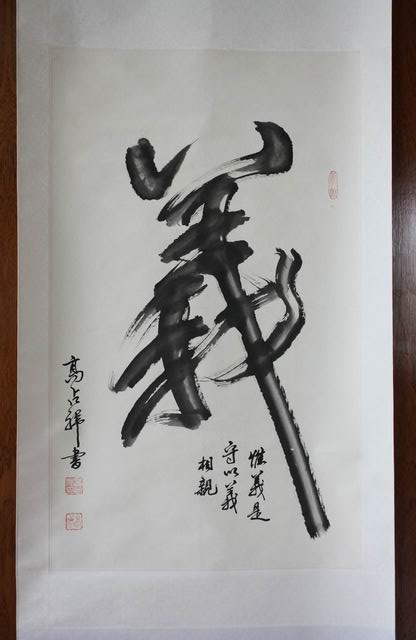 義
惟義是
守以義
相親
高占祥書